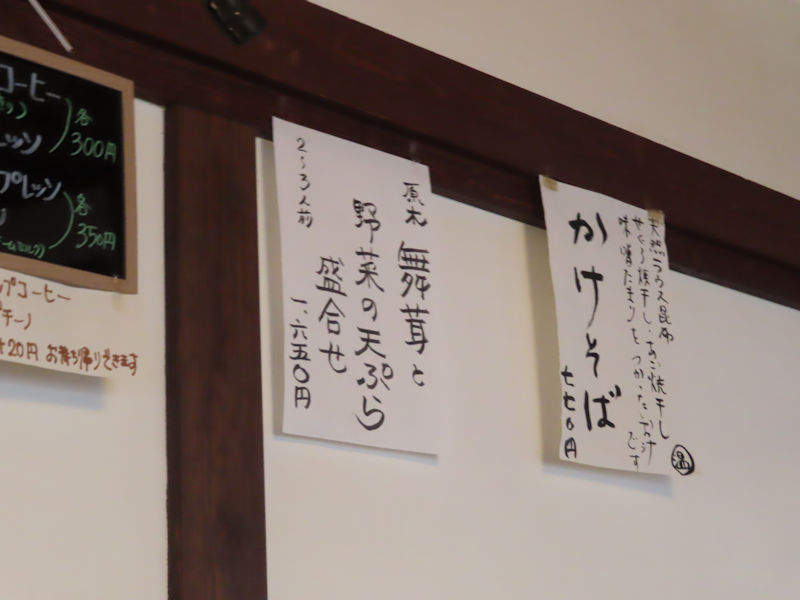 コーヒー
各
300円
プレッソ
各
350円
プコーヒー
チーノ
+20円 お持ち帰りできます
原木 舞茸と
野菜の天ぷら
盛合せ
2〜3人前
一、六五〇円
天然ラウス昆布
焼干し・あご焼干し
味噌たまりをつかったおつけ
です
かけそば
七七〇円
温